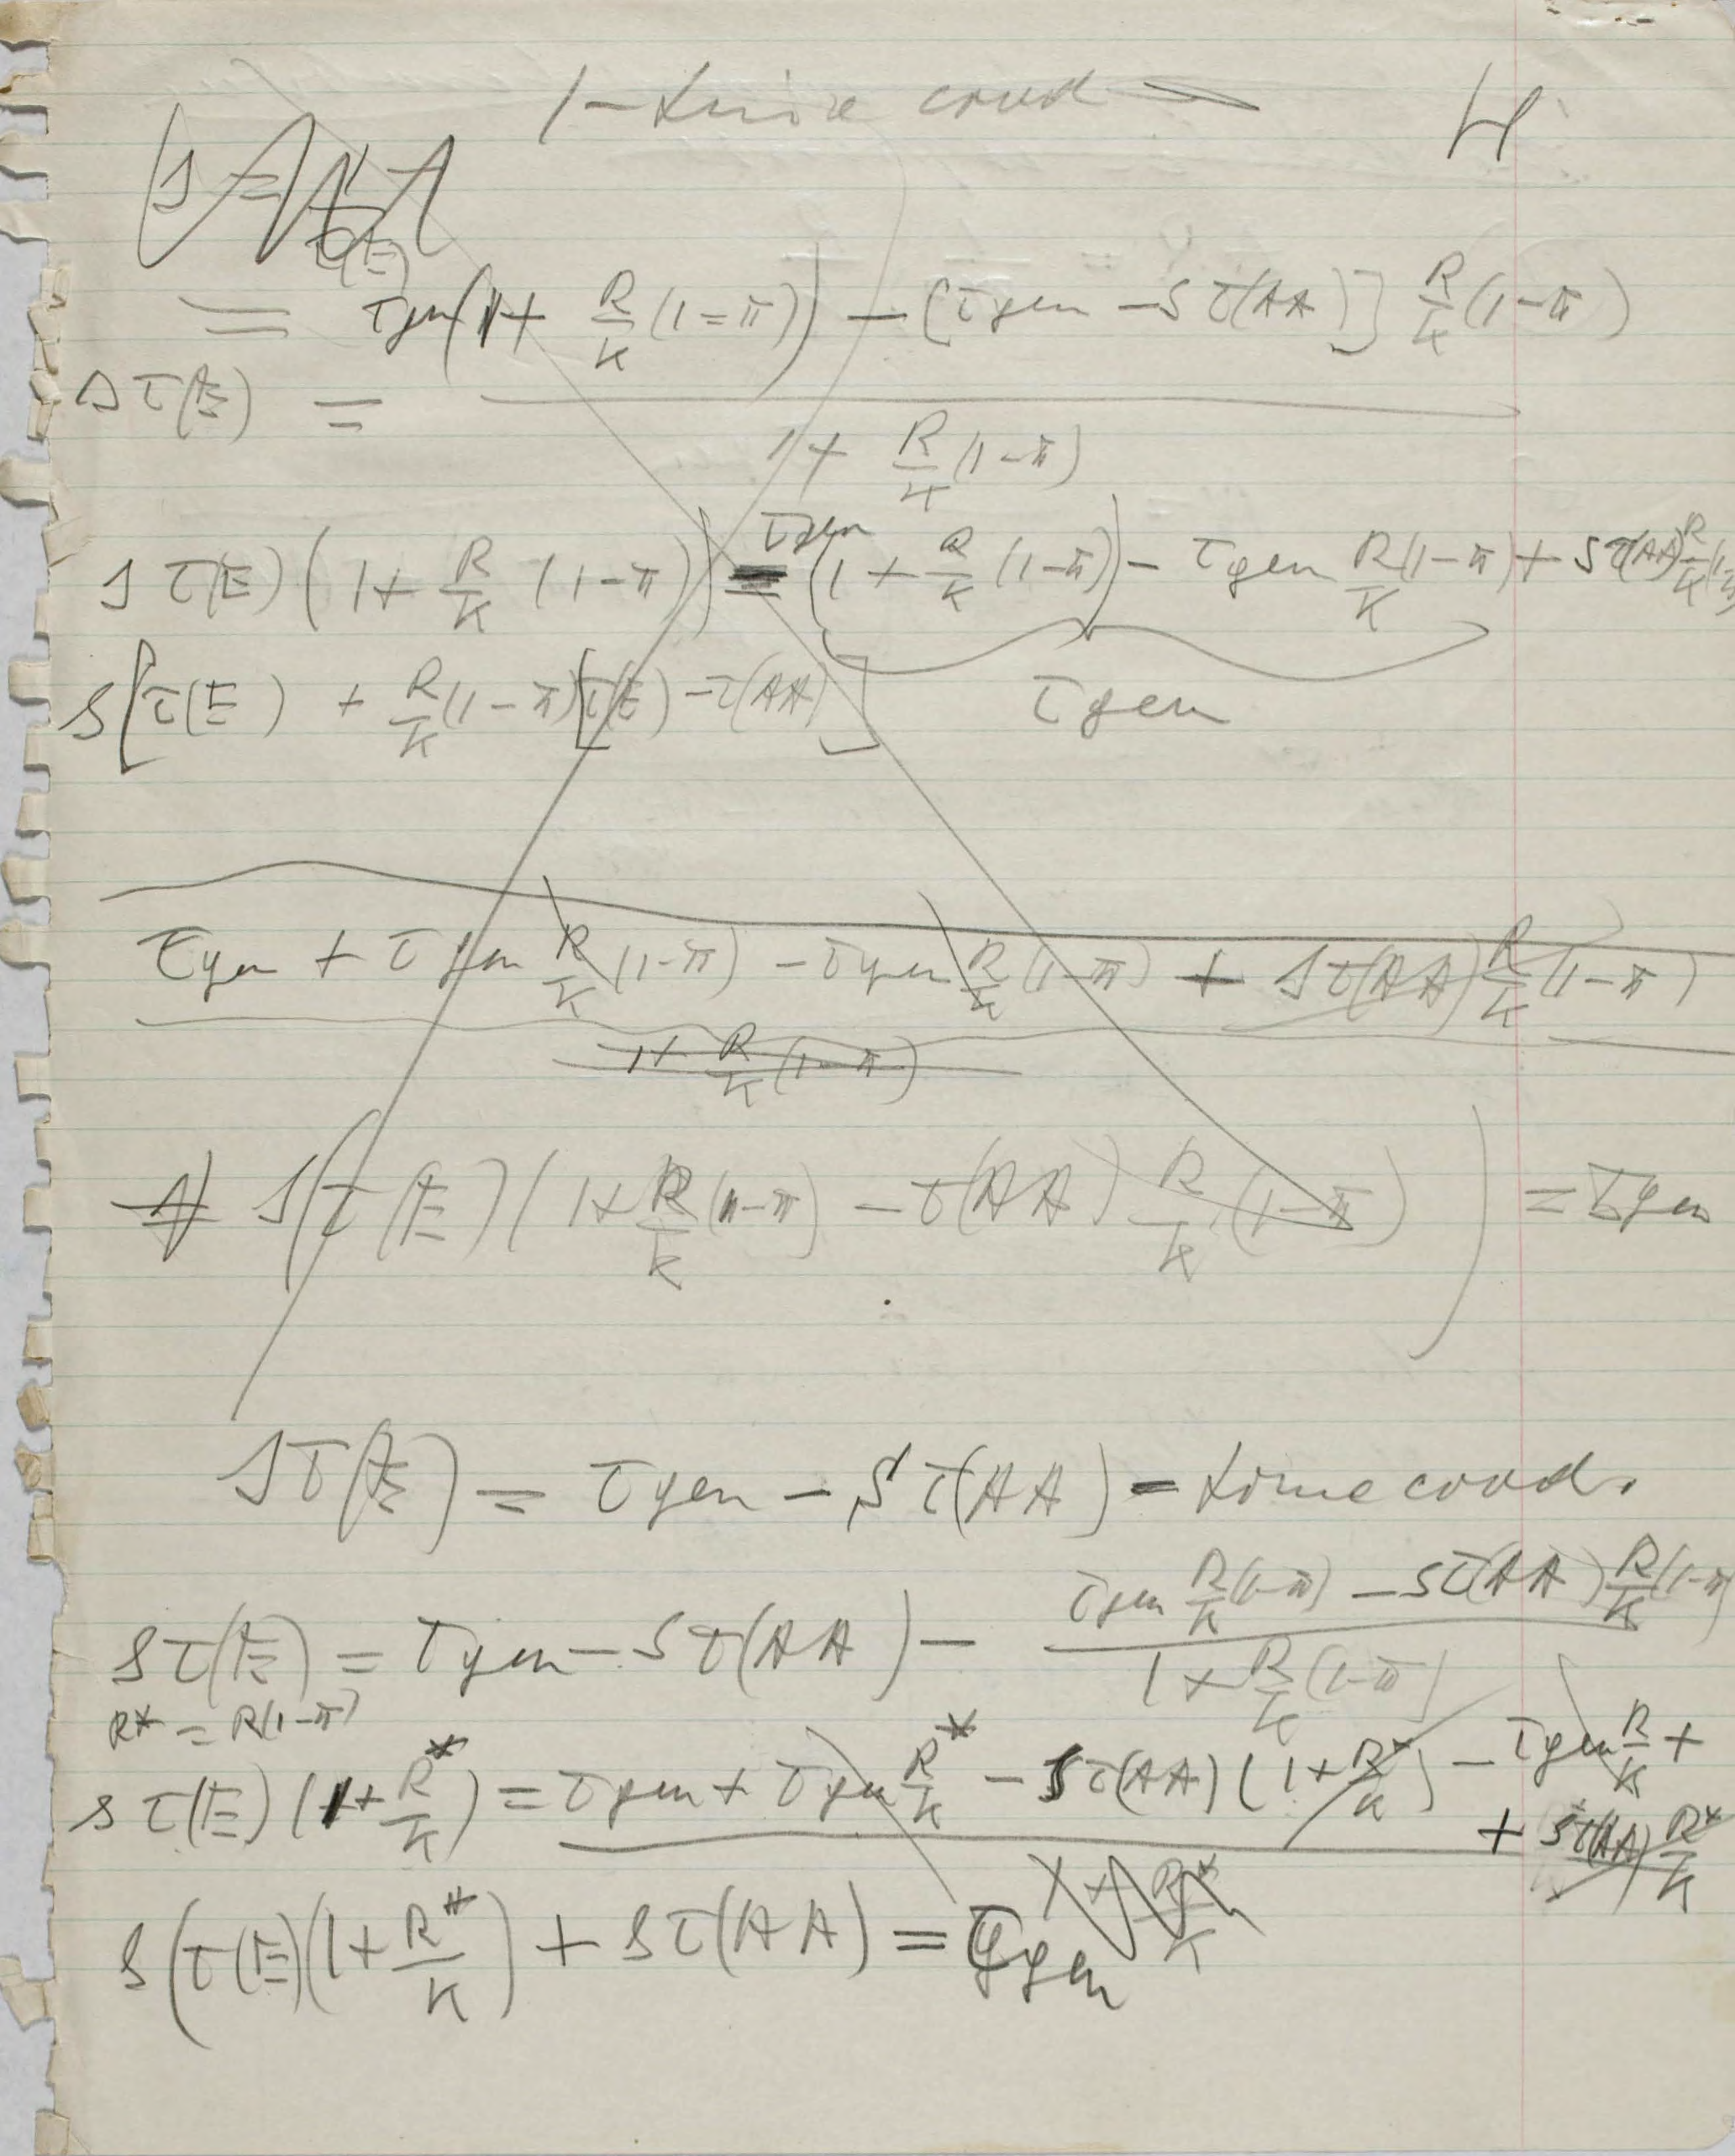 1 - time cond
H
= τgen(1 + R/K (1-π)) - [τgen - S τ(AA)] R/K (1-π)
s τ(E) =
1 + R/K (1-π)
s τ(E) (1 + R/K (1-π)) = τgen (1 + R/K (1-π)) - τgen R/K (1-π) + S τ(AA) R/K (1-π)
s[τ(E) + R/K (1-π)[τ(E) - τ(AA)]
τgen
τgen + τgen R/K (1-π) - τgen R/K (1-π) + s τ(AA) R/K (1-π)
1 + R/K (1-π)
s(τ(E)(1 + R/K (1-π) - τ(AA) R/K (1-π)) = τgen
s τ(E) = τgen - S τ(AA) - time cond.
s τ(E) = τgen - S τ(AA) - τgen R/K (1-π) - S τ(AA) R/K (1-π)
1 + R/K (1-π)
R* = R(1-π)
s τ(E) (1 + R*/K) = τgen + τgen R*/K - S τ(AA) (1 + R*/K) - τgen R/K +
+ S τ(AA) R*/K
1 + R*/K
s(τ(E)(1 + R*/K) + s τ(AA) = τgen